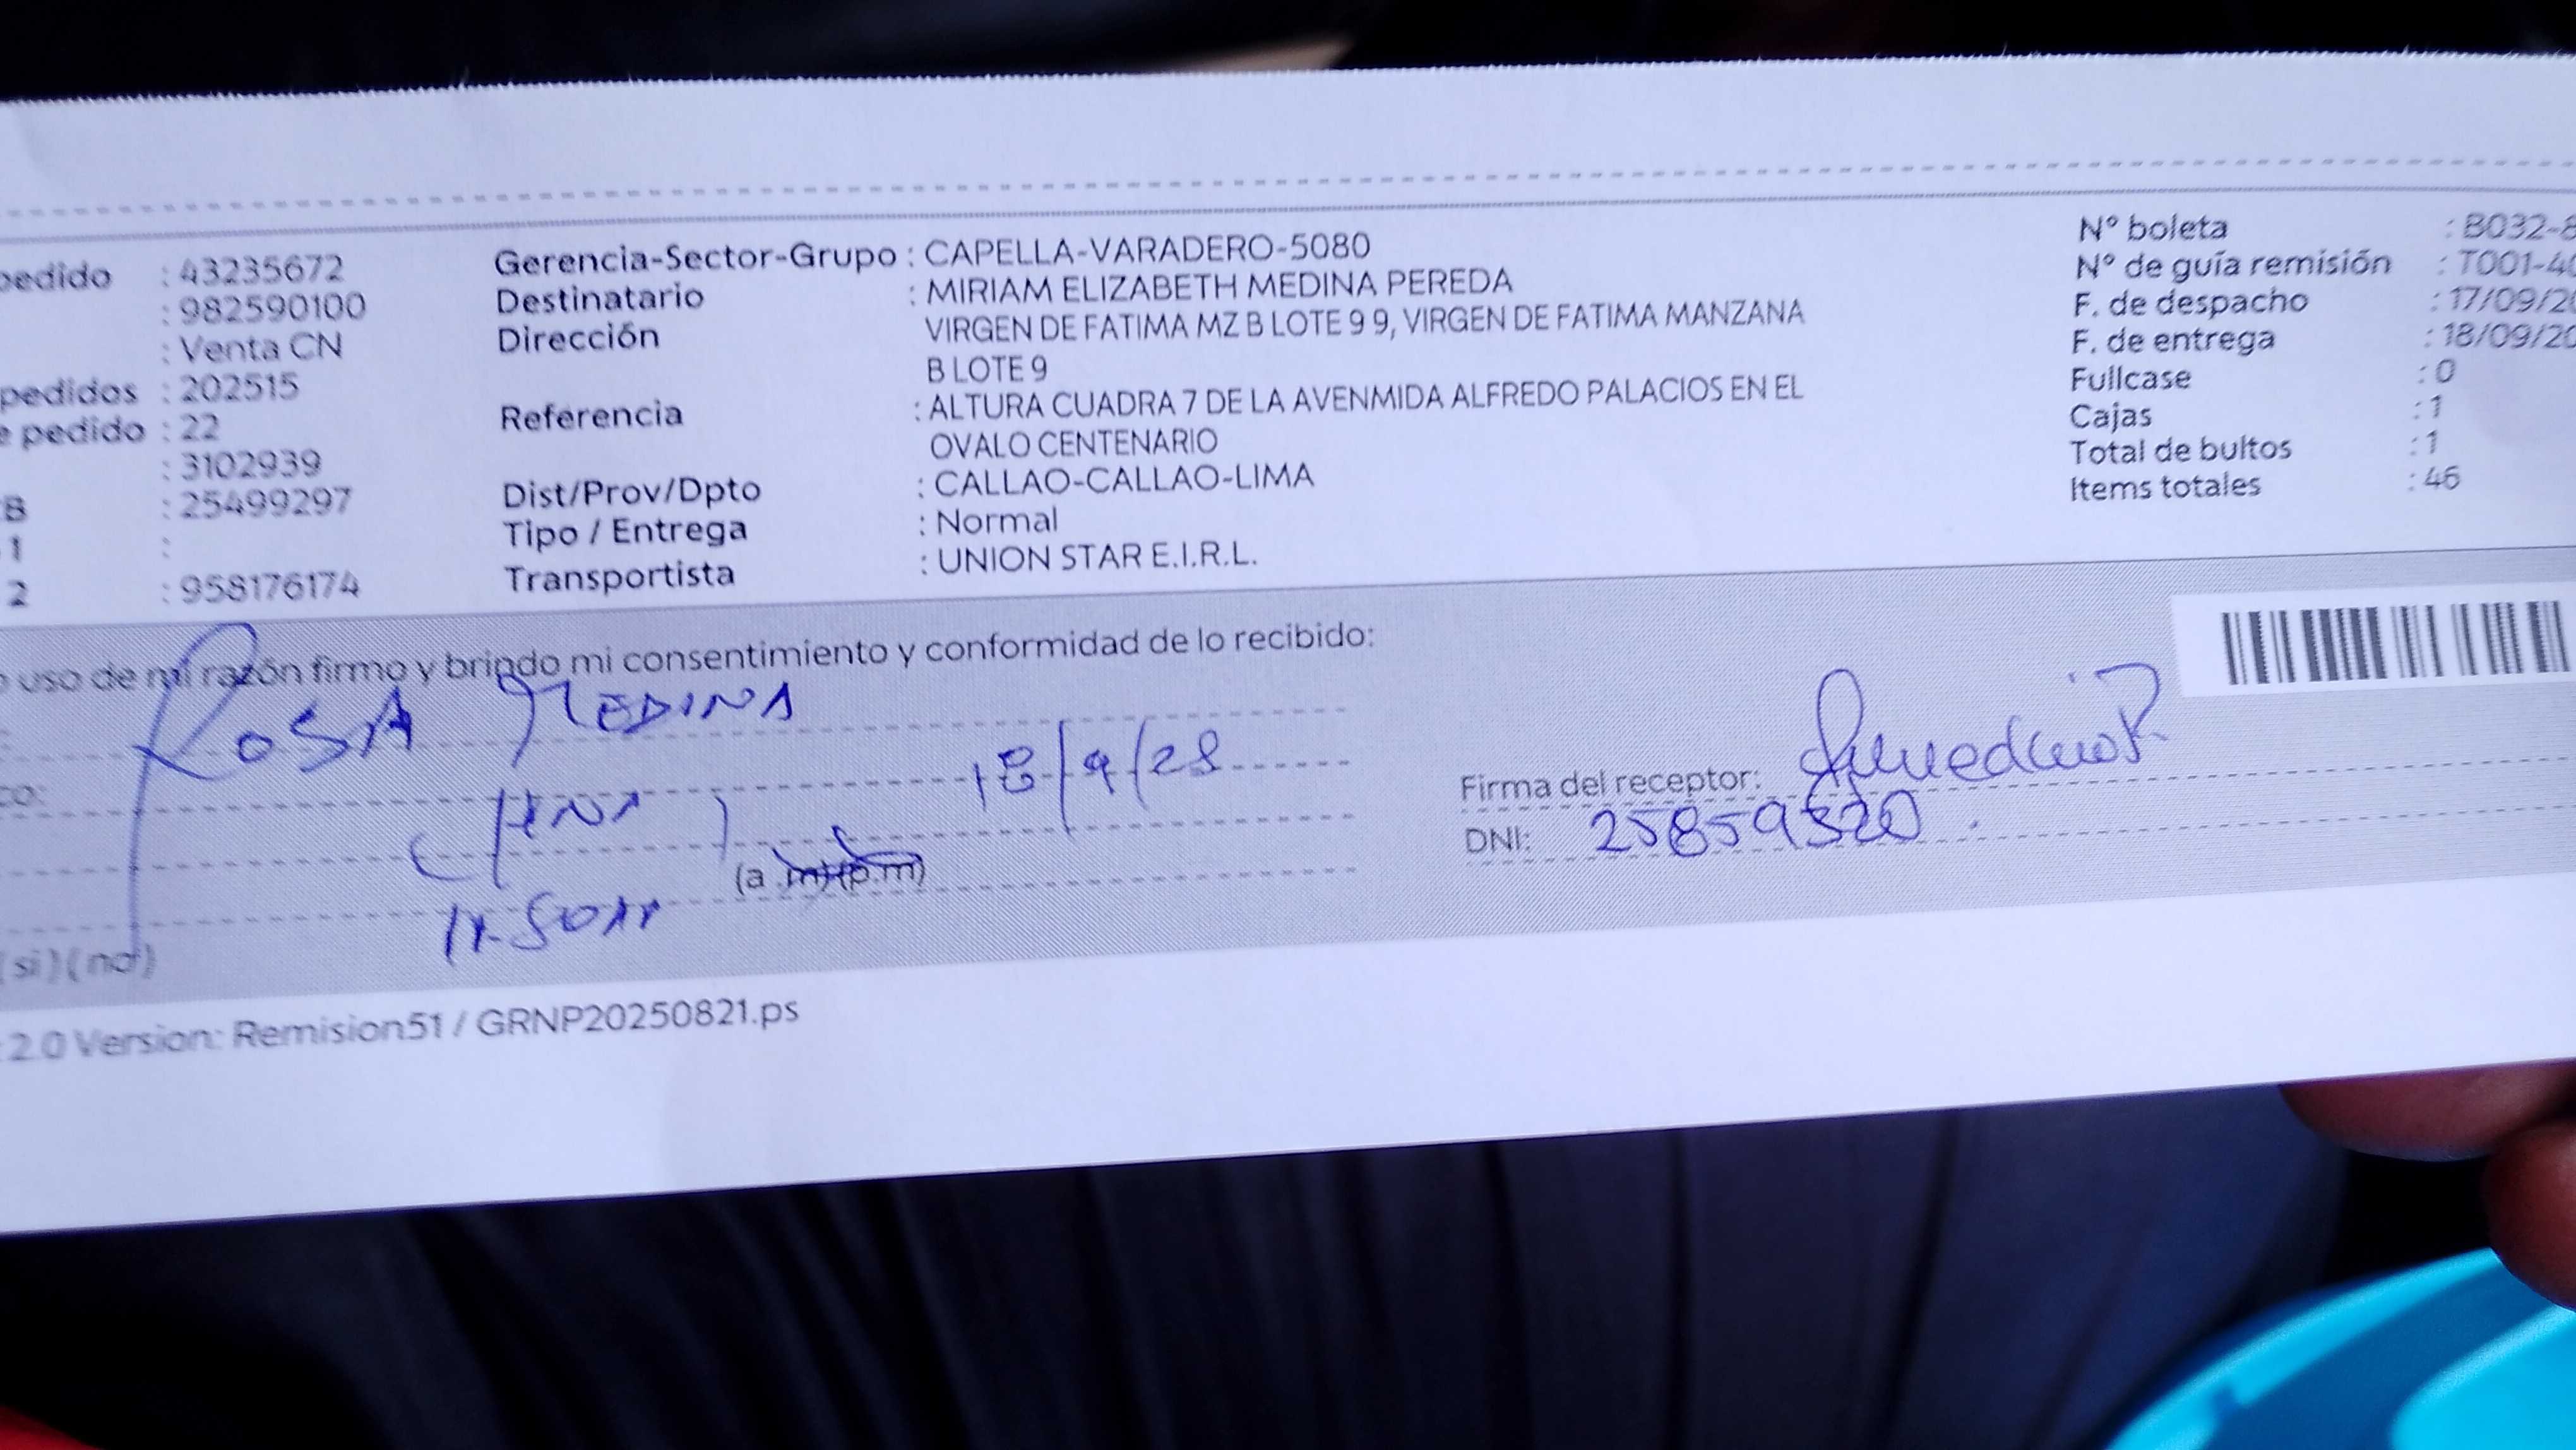 pedido : 43235672
: 982590100
: Venta CN
pedidos : 202515
e pedido : 22
: 3102939
B : 25499297
1 :
2 : 958176174
Gerencia-Sector-Grupo : CAPELLA-VARADERO-5080
Destinatario : MIRIAM ELIZABETH MEDINA PEREDA
Dirección VIRGEN DE FATIMA MZ B LOTE 9 9, VIRGEN DE FATIMA MANZANA
B LOTE 9
Referencia : ALTURA CUADRA 7 DE LA AVENMIDA ALFREDO PALACIOS EN EL
OVALO CENTENARIO
Dist/Prov/Dpto : CALLAO-CALLAO-LIMA
Tipo / Entrega : Normal
Transportista : UNION STAR E.I.R.L.
Nº boleta : B032-8
Nº de guía remisión : T001-40
F. de despacho : 17/09/20
F. de entrega : 18/09/20
Fullcase : 0
Cajas : 1
Total de bultos : 1
Items totales : 46
o uso de mi razón firmo y brindo mi consentimiento y conformidad de lo recibido:
ROSA MEDINA
co:
18/9/25
(a.m)(p.m)
(si)(no)
Firma del receptor:
DNI: 25859320
2.0 Version: Remision51 / GRNP20250821.ps